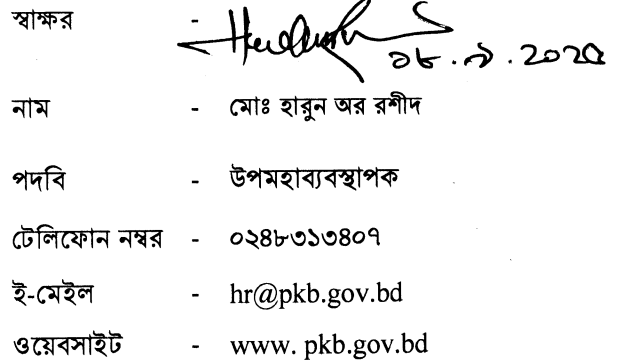 স্বাক্ষর -
১৮.৯.২০২৫
নাম - মোঃ হারুন অর রশীদ
পদবি - উপমহাব্যবস্থাপক
টেলিফোন নম্বর - ০২৪৮৩১৩৪০৭
ই-মেইল - hr@pkb.gov.bd
ওয়েবসাইট - www. pkb.gov.bd